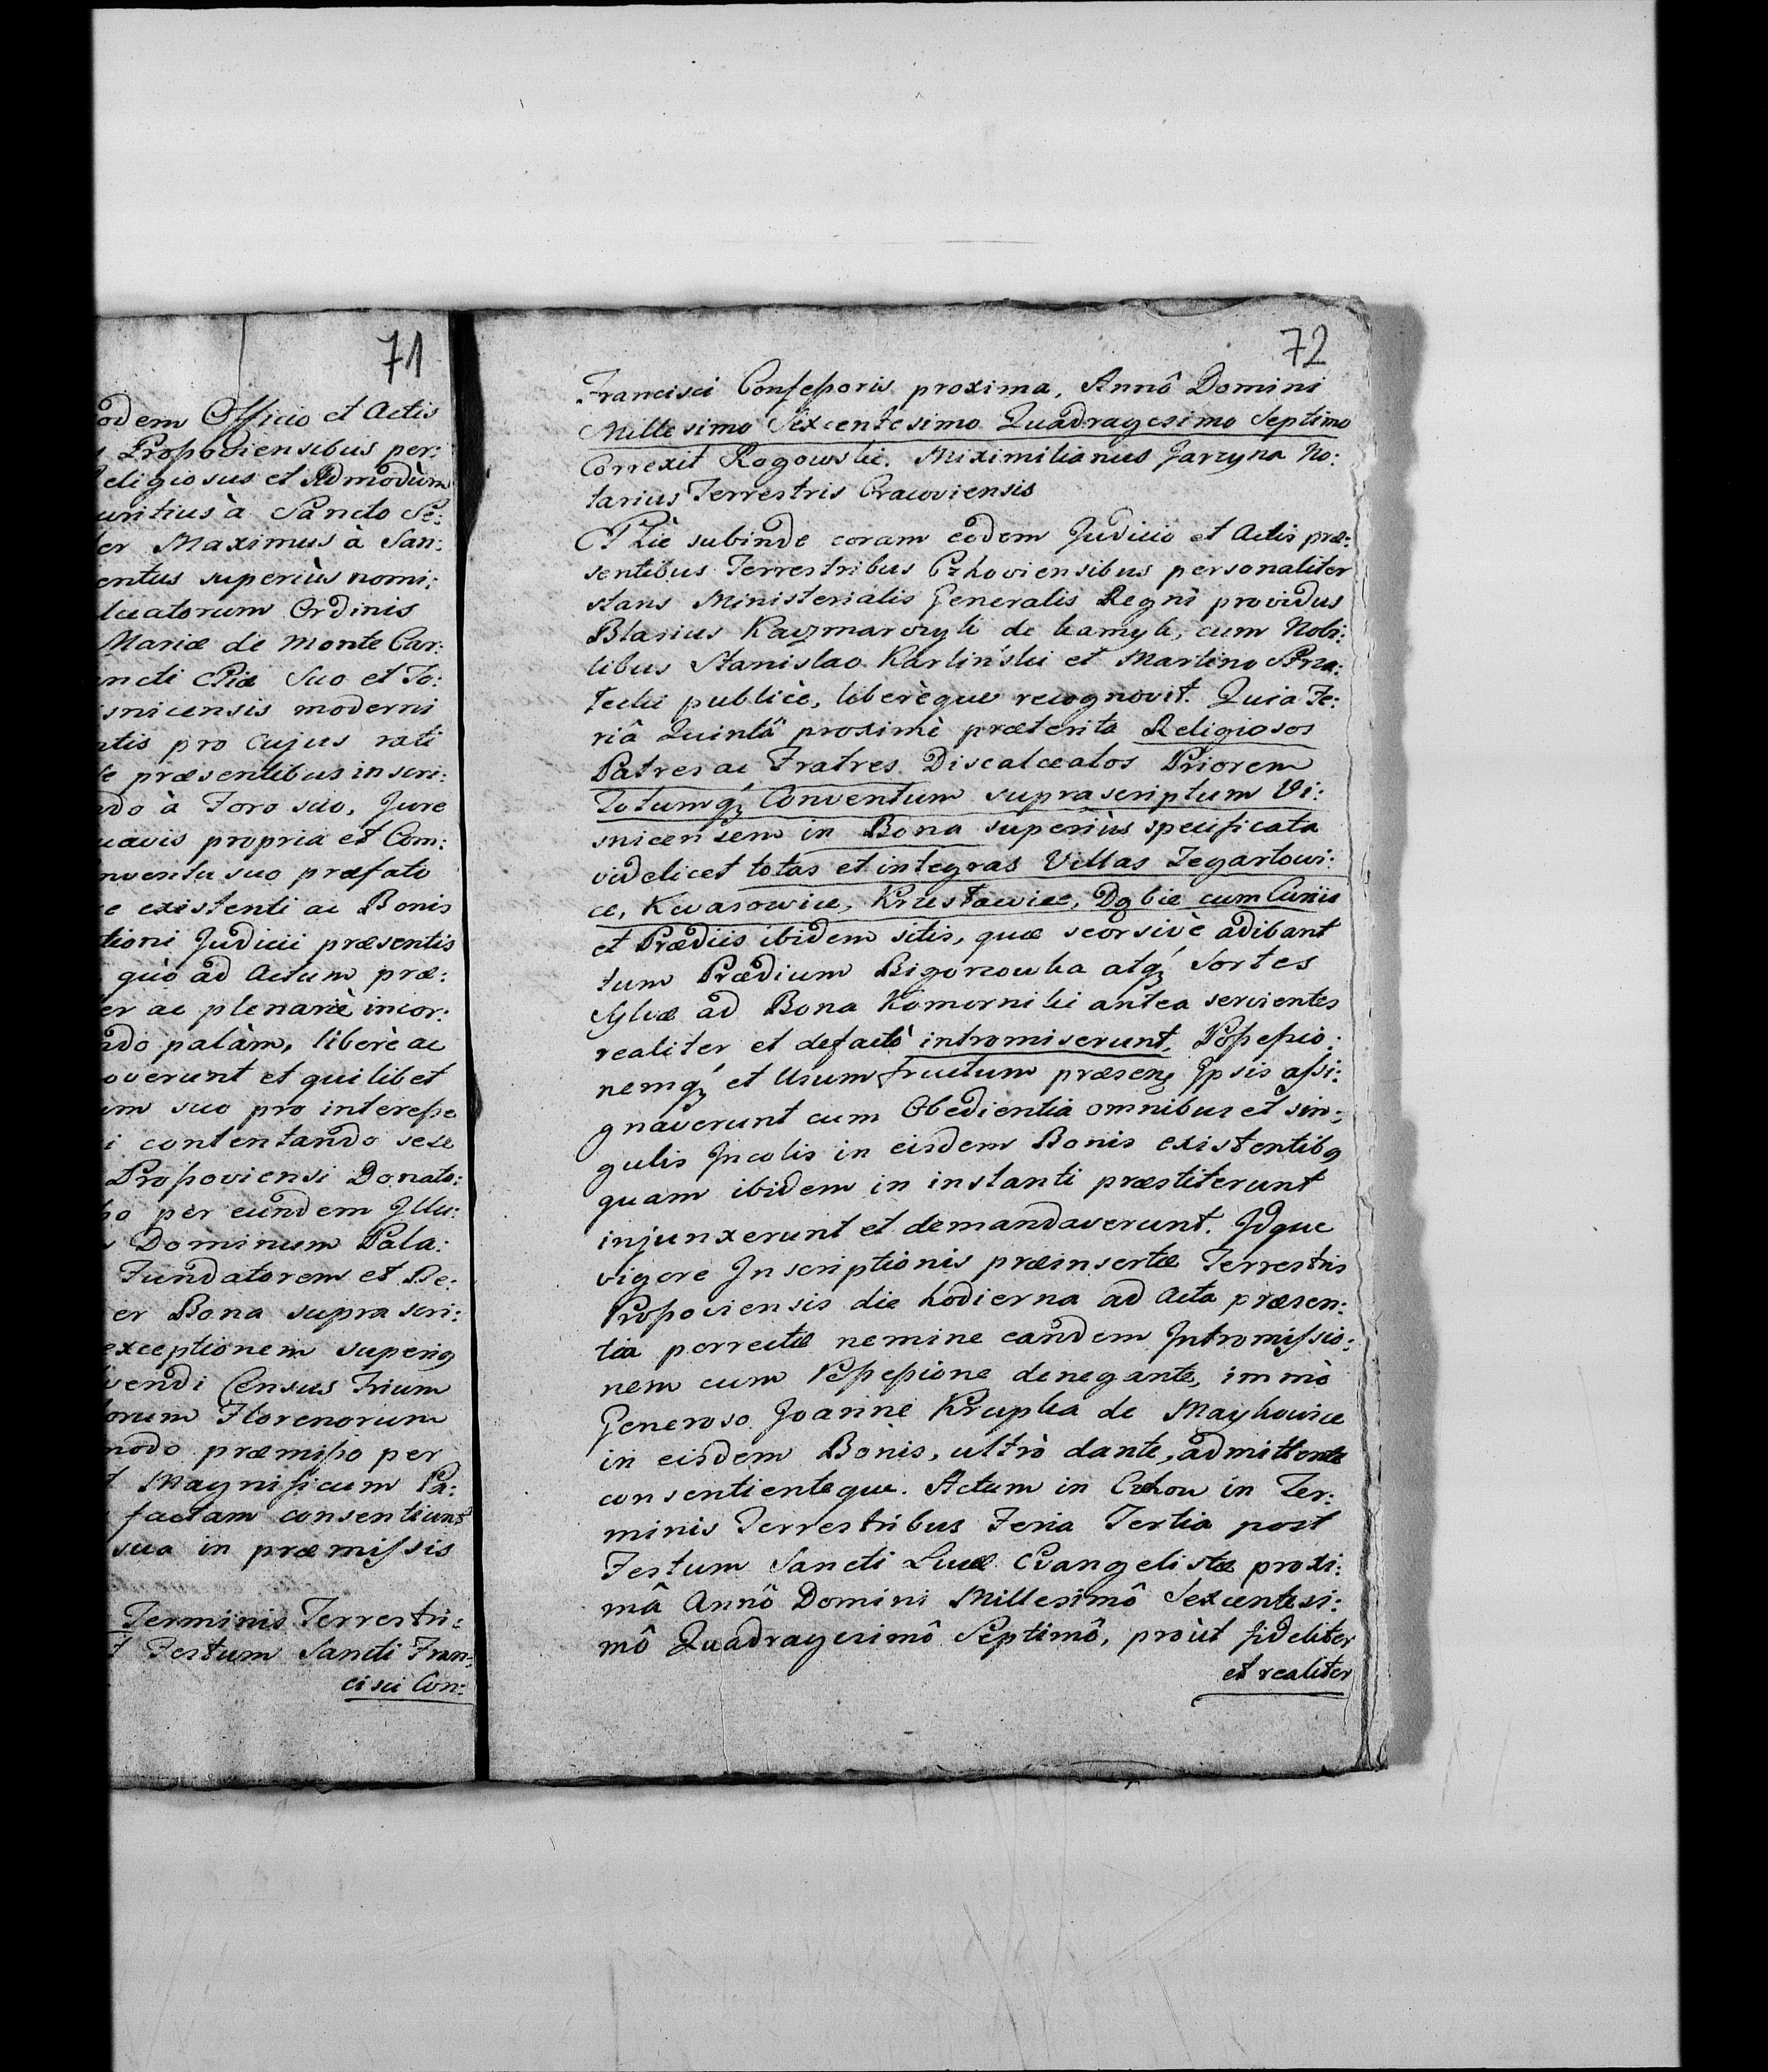 71
odem Officio et Actis
Proszoviensibus per:
eligiosus et Admodùm
uritius à Sancto Se:
er Maximus à San:
entus superiùs nomi:
lceatorum Ordinis
Mariæ de Monte Car:
ncti Piæ Suo et To:
snicensis moderni
ntis pro Cujus rati
e præsentibus inscri:
ndo à Foro suo, Jure
uavis propria et Com:
nventu suo præfato
e existenti ac Bonis
tioni Judicii præsentis
quò ad Actum præ:
er ac plenariè incor:
ndo palàm, liberè ac
overunt et quilibet
um suo pro interesse
i contentando sese
Proszoviensi Donato:
per eundem Illu:
Dominum Pala:
Fundatorem et Be:
er Bona supra scri:
exceptionem superiq
vendi Census Trium
orum Florenorum
modo præmisso per
Magnificum Pa:
factam consentiunt
sua in præmissis
Terminis Terrestri:
Festum Sancti Fran:
cisci Con:
72
Francisci Confessoris proxima, Annô Domini
Millesimo Sexcentesimo Quadragesimo Septimo
Correxit Rogowski. Miximilianus Jarzyna No:
tarius Terrestris Cracoviensis
Hic subinde coram eodem Judicio et Actis præ:
sentibus Terrestribus Czhoviensibus personaliter
stans Ministerialis Generalis Regni providus
Blasius Kaczmarczyk de kamyk, cum Nobi:
libus Stanislao Karlinski et Martino
publicè, liberèque recognovit. Quia Fe:
riâ Quintâ proximè præterita Religiosos
Patres ac Fratres Discalceatos Priorem
Totumq́ Conventum suprascriptum Vi:
snicensem in Bona superiùs specificata
videlicet totas et integras Villas Zegartowi:
ce, Kwasowice, Krustawice, Dąbie cum Curiis
et Prædiis ibidem sitis, quæ seorsivè adibant
tum Prædium Bigorzowka atq́ Sortes
Sylvæ ad Bona Komorniki antea servientes
realiter et defactò intromiserunt, Possessio:
nemq́ et Usumfructum præsenz Ipsis assi:
gnaverunt cum Obedientia omnibus et sin:
gulis Incolis in eisdem Bonis existentibq
quam ibidem in instanti præstiterunt
injunxerunt et demandaverunt. Idque
vigore Inscriptionis præinsertæ Terrestris
Proszoviensis die hodierna ad Acta præsen:
tia porrectæ nemine eandem Intromissio:
nem cum Possessione denegante, immò
Generoso Joanne Krupka de Maykowice
in eisdem Bonis, ultrò dante, admittente
consentienteque. Actum in Czchow in Ter:
minis Terrestribus Feria Tertia post
Festum Sancti Lucæ Evangelistæ proxi:
mâ Annô Domini Millesimô Sexcentesi:
mô Quadragesimô Septimô, proùt fideliter
et realiter